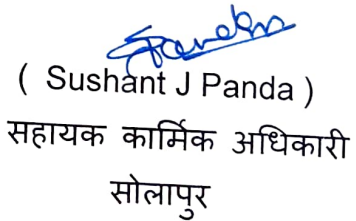 ( Sushant J Panda )
सहायक कार्मिक अधिकारी
सोलापुर